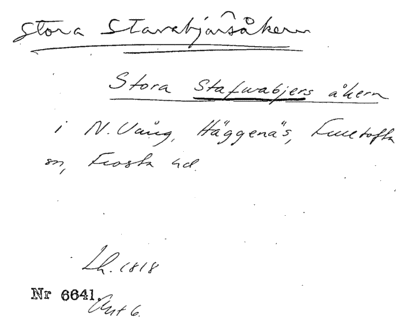 Stora Stavabjärsåkern
Stora Stafwabjers åkern
i N. Vång, Häggenäs, Fulltofta
sn, Frosta hd.
Lh. 1818
Nr 6641.
Akt 6.